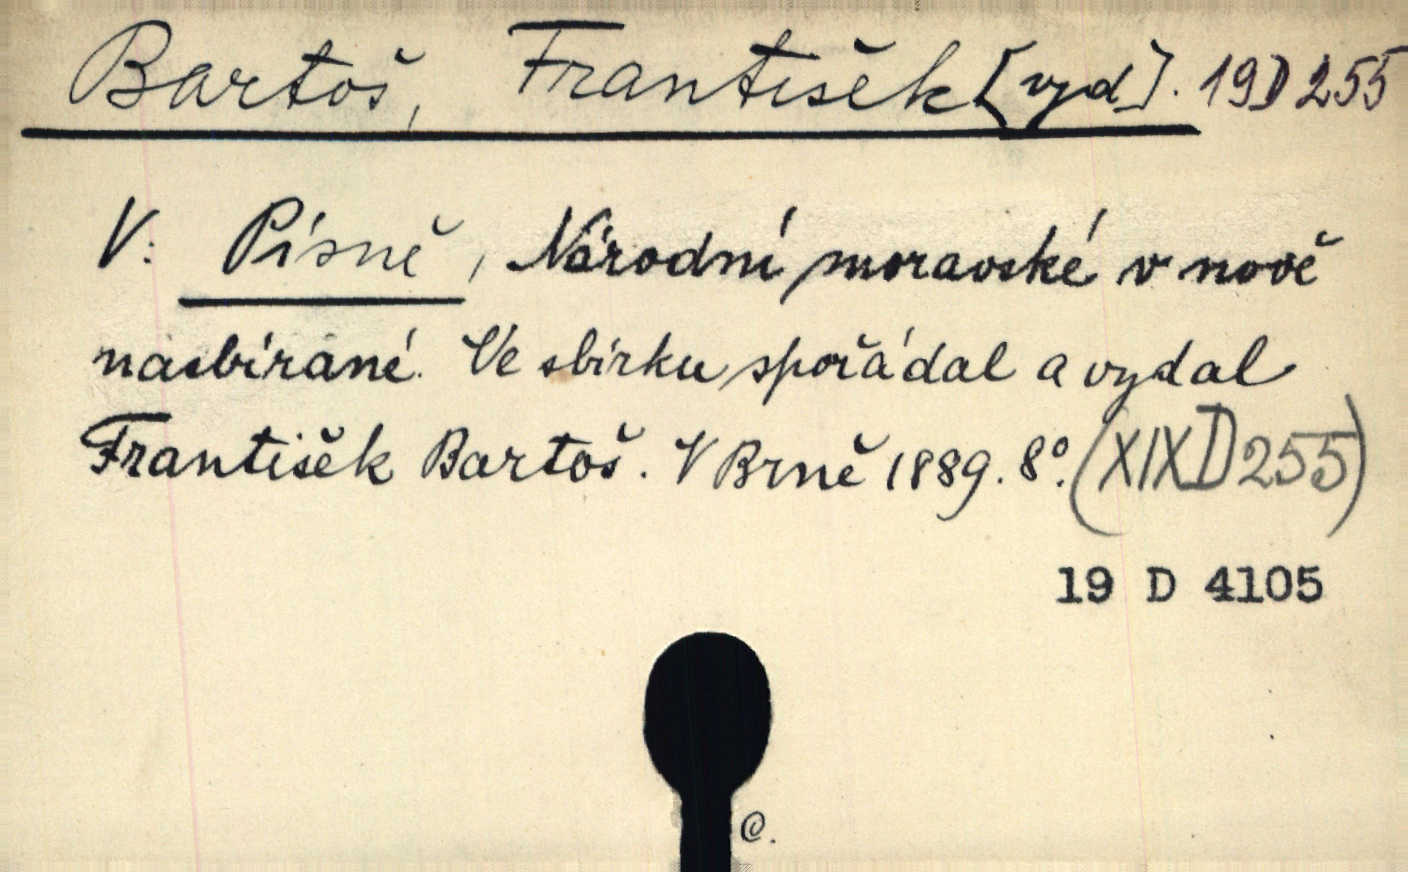 Bartoš, František [vyd]. 19D255
V: Písně, Národní moravské v nově
nasbírané. Ve sbírku spořádal a vydal
František Bartoš. V Brně 1889. 8°. (XIXD255)
19 D 4105
C.